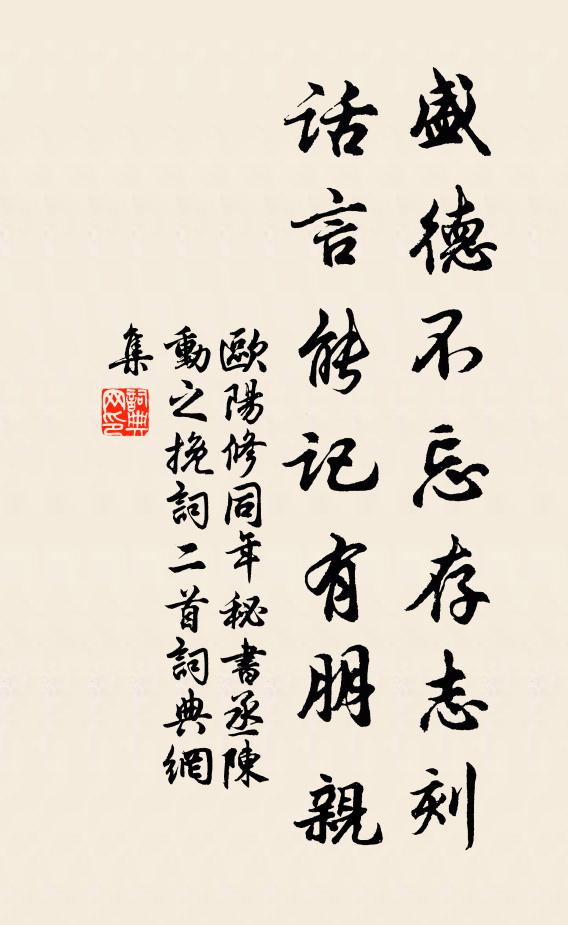 盛德不忘存志刻
话言能记有朋親
歐陽修同年秘書丞陳
動之挽詞二首詞典網
集
詞典网印